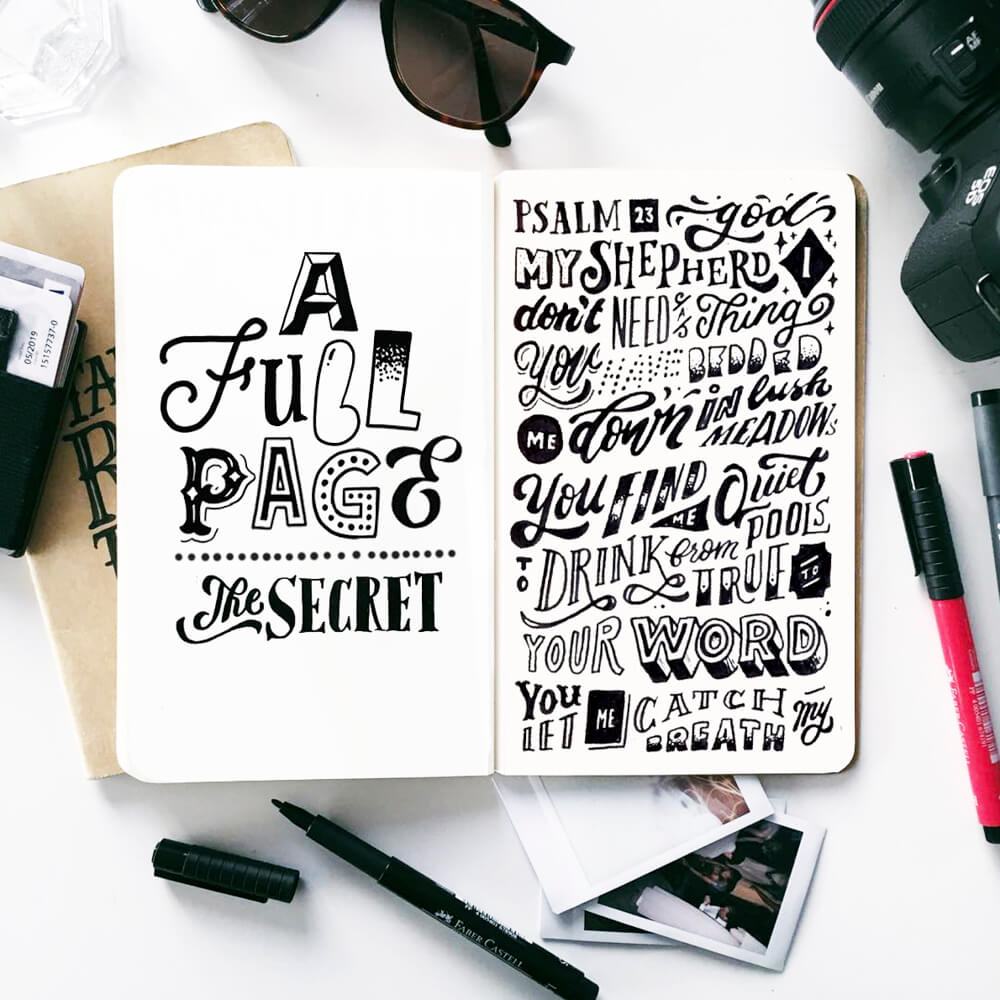 A
FULL
PAGE
The SECRET
PSALM 23 god
MY SHEPHERD I
don't NEED a Thing
You BEDDED
ME down IN lush
MEADOWS
You FIND ME Quiet
POOLS
TO DRINK from
TRUE TO
YOUR WORD
You LET ME CATCH my
BREATH
05/2019
15157737-0
Canon
AF
MF
EOS
6D
FABER-CASTELL
FABER-CASTELL